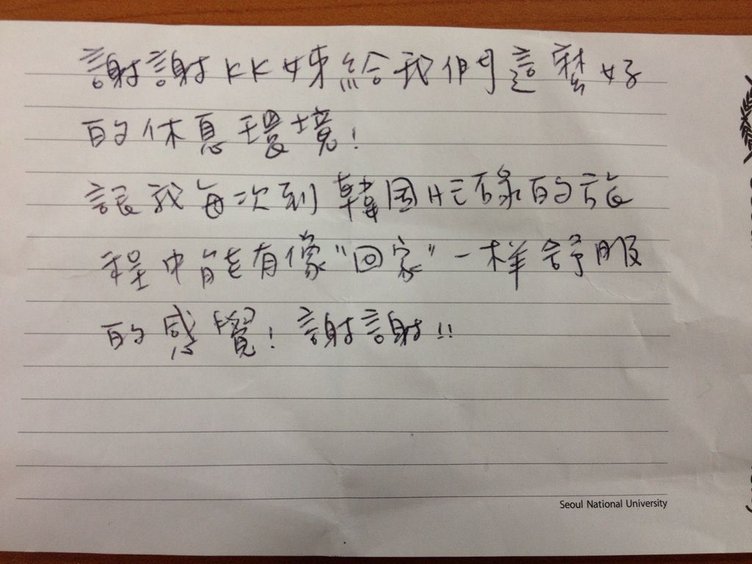 謝謝KK姊給我們這麼好
的休息環境!
讓我每次到韓国忙碌的旅
程中能有像"回家"一样舒服
的感覺! 謝謝!!
Seoul National University